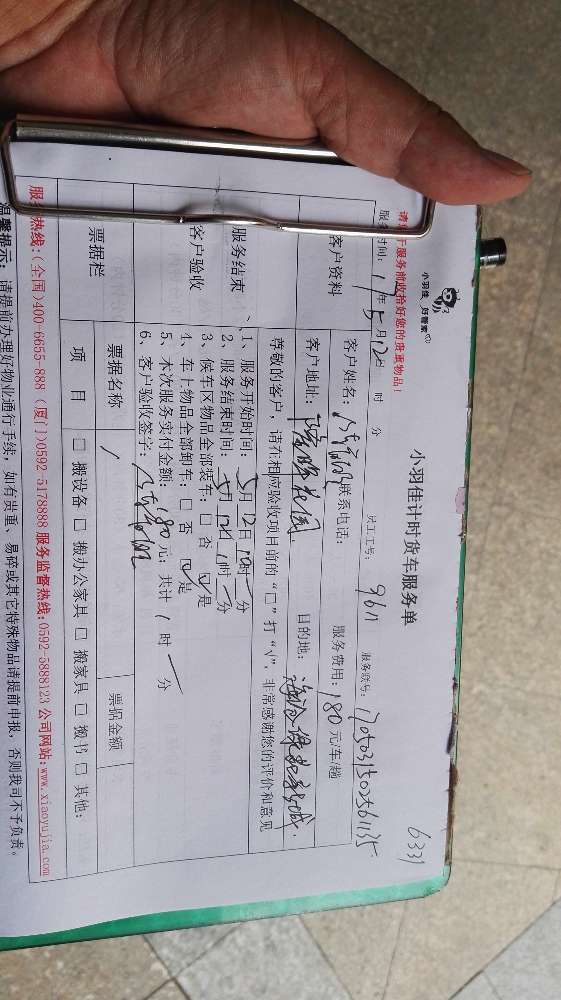 小羽佳 好管家
6331
小羽佳计时货车服务单
请您于服务前收拾好您的贵重物品！
服务时间：17年5月12日 时 分 员工工号：9611 服务账号：
客户资料
客户姓名： 联系电话： 服务费用：180元/车/趟
客户地址： 目的地：
尊敬的客户，请在相应验收项目前的“□”打“√”，非常感谢您的评价和意见
服务结束
客户验收
1、服务开始时间：5月12日10时 分
2、服务结束时间：5月12日11时 分
3、候车区物品全部装车：□否 ☑是
4、车上物品全部卸车：□否 ☑是
5、本次服务实付金额：180元；共计1时 分
6、客户验收签字：
票据栏
票据名称 票据金额
项 目 □搬设备 □搬办公家具 □搬家具 □搬书 □其他：
服务热线：(全国)400-6655-888 (厦门)0592-5178888 服务监督热线：0592-5888123 公司网站：www.xiaoyujia.com
温馨提示：请提前办理好物业通行手续，如有贵重、易碎或其它特殊物品请提前申报，否则我司不予负责。